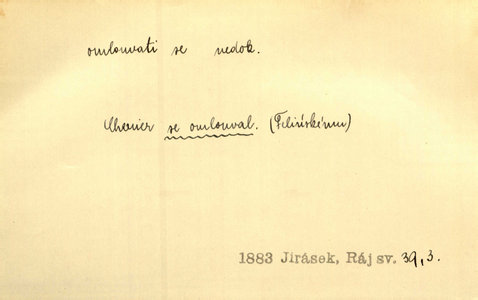 omlouvati se nedok.
Chenier se omlouval. (Felinskému)
1883 Jirásek, Ráj sv. 39,3.